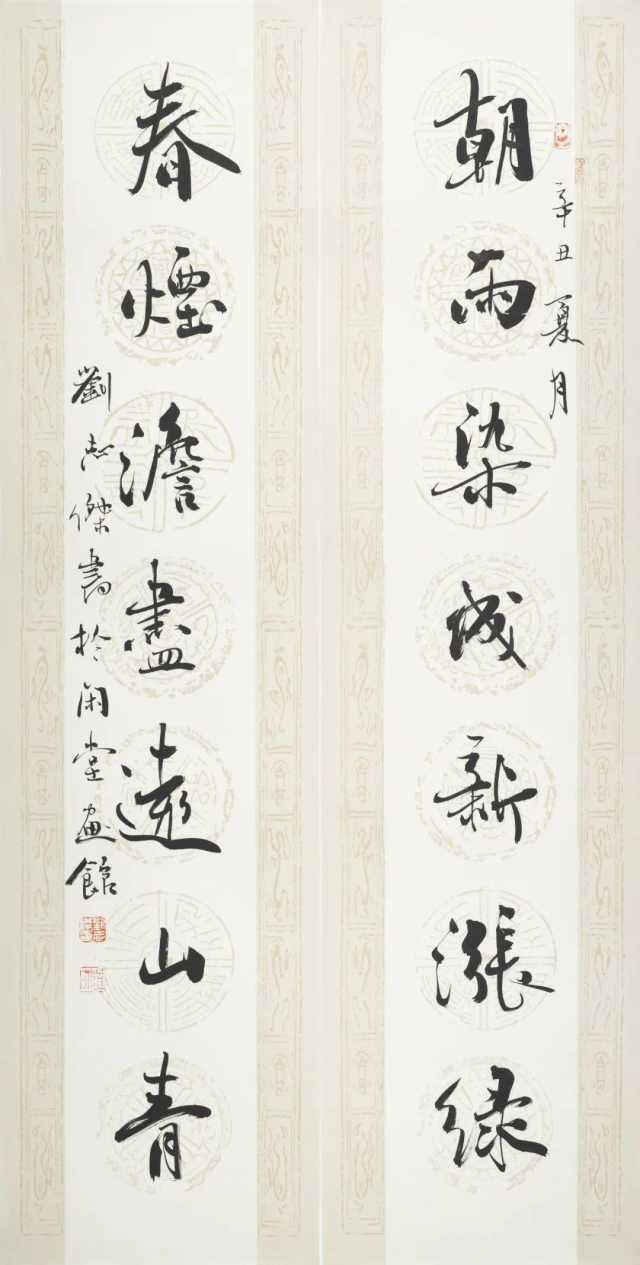 朝雨染成新漲綠
辛丑夏月
春煙澹盡遠山青
劉志傑書於閑堂畫館